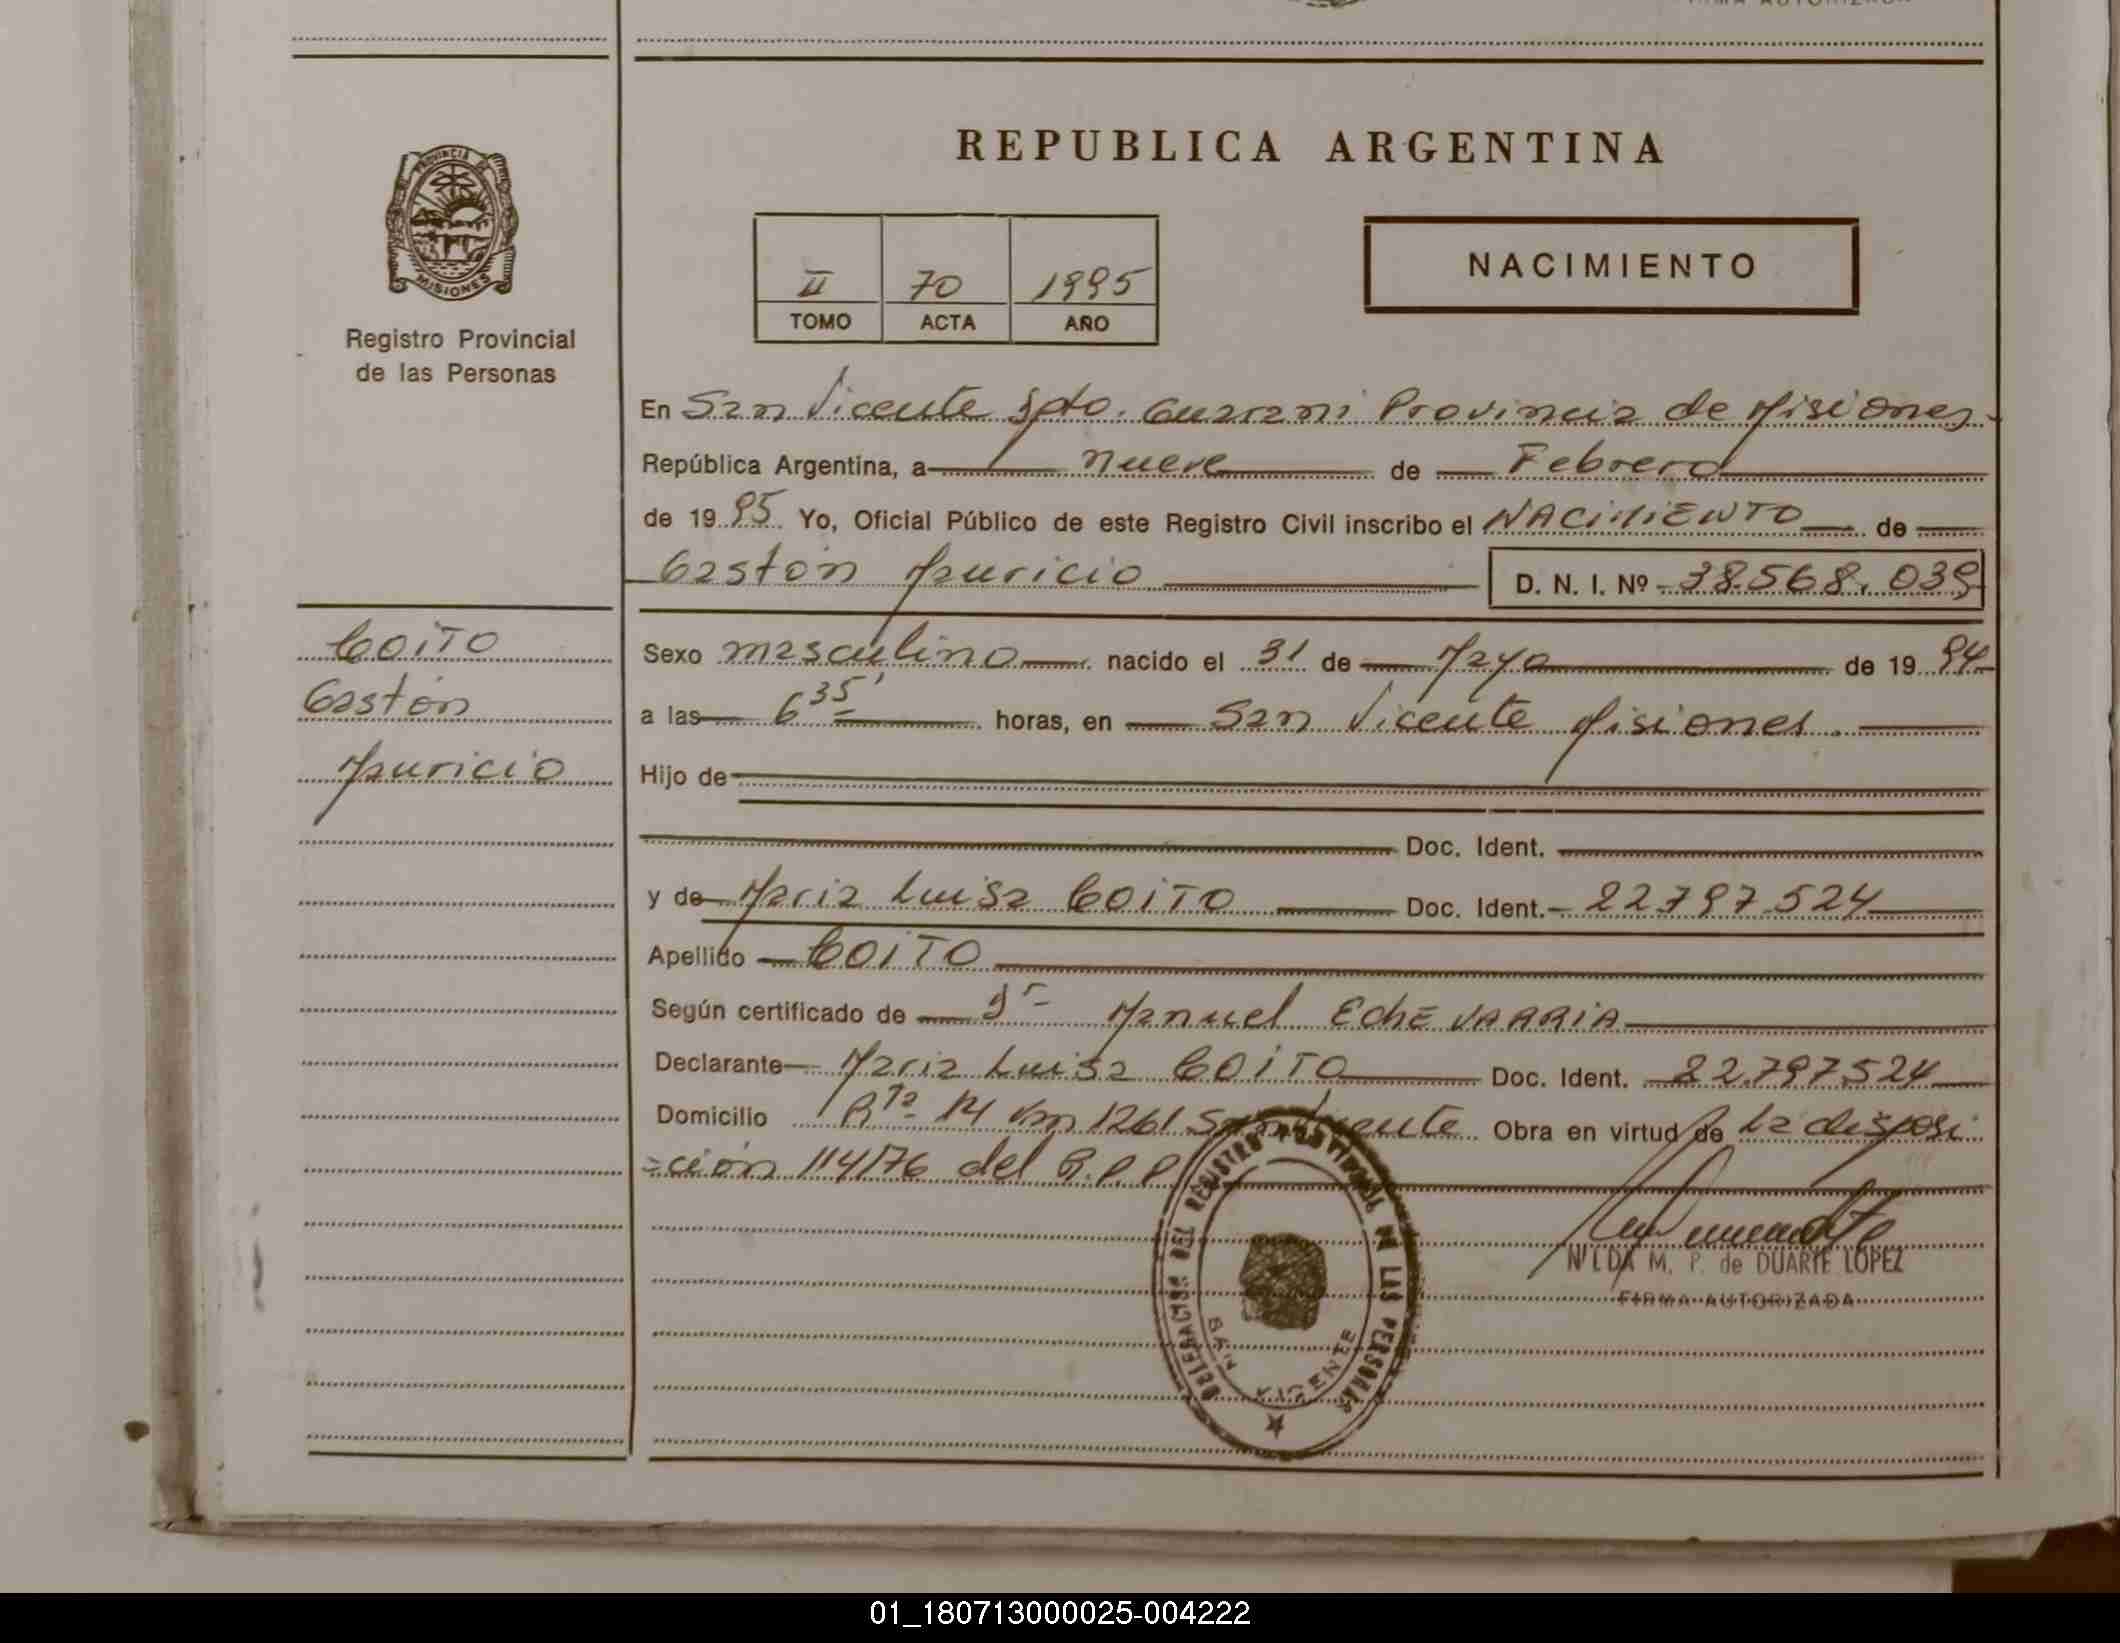 REPUBLICA ARGENTINA
PROVINCIA DE
MISIONES
Registro Provincial
de las Personas
II 70 1995
TOMO ACTA AÑO
NACIMIENTO
En San Vicente Dpto. Guarani Provincia de Misiones.-
República Argentina, a nueve de Febrero
de 1995 Yo, Oficial Público de este Registro Civil inscribo el NACIMIENTO de
Gastón Mauricio D. N. I. Nº 38.568.039
COITO
Gastón
Mauricio
Sexo masculino nacido el 31 de Mayo de 1994
a las 6 35' horas, en San Vicente Misiones.
Hijo de
Doc. Ident.
y de Maria Luisa COITO Doc. Ident.- 22.797.524
Apellido COITO
Según certificado de Dr Manuel EchEVARRIA
Declarante Maria Luisa COITO Doc. Ident. 22.797.524
Domicilio Rta 14 km 1261 San Vicente Obra en virtud de la disposi
=ción 114/76 del R.P.P
DELEGACION DEL REGISTRO PROVINCIAL DE LAS PERSONAS
SAN VICENTE
NILDA M. P. de DUARTE LOPEZ
FIRMA AUTORIZADA
01_180713000025-004222